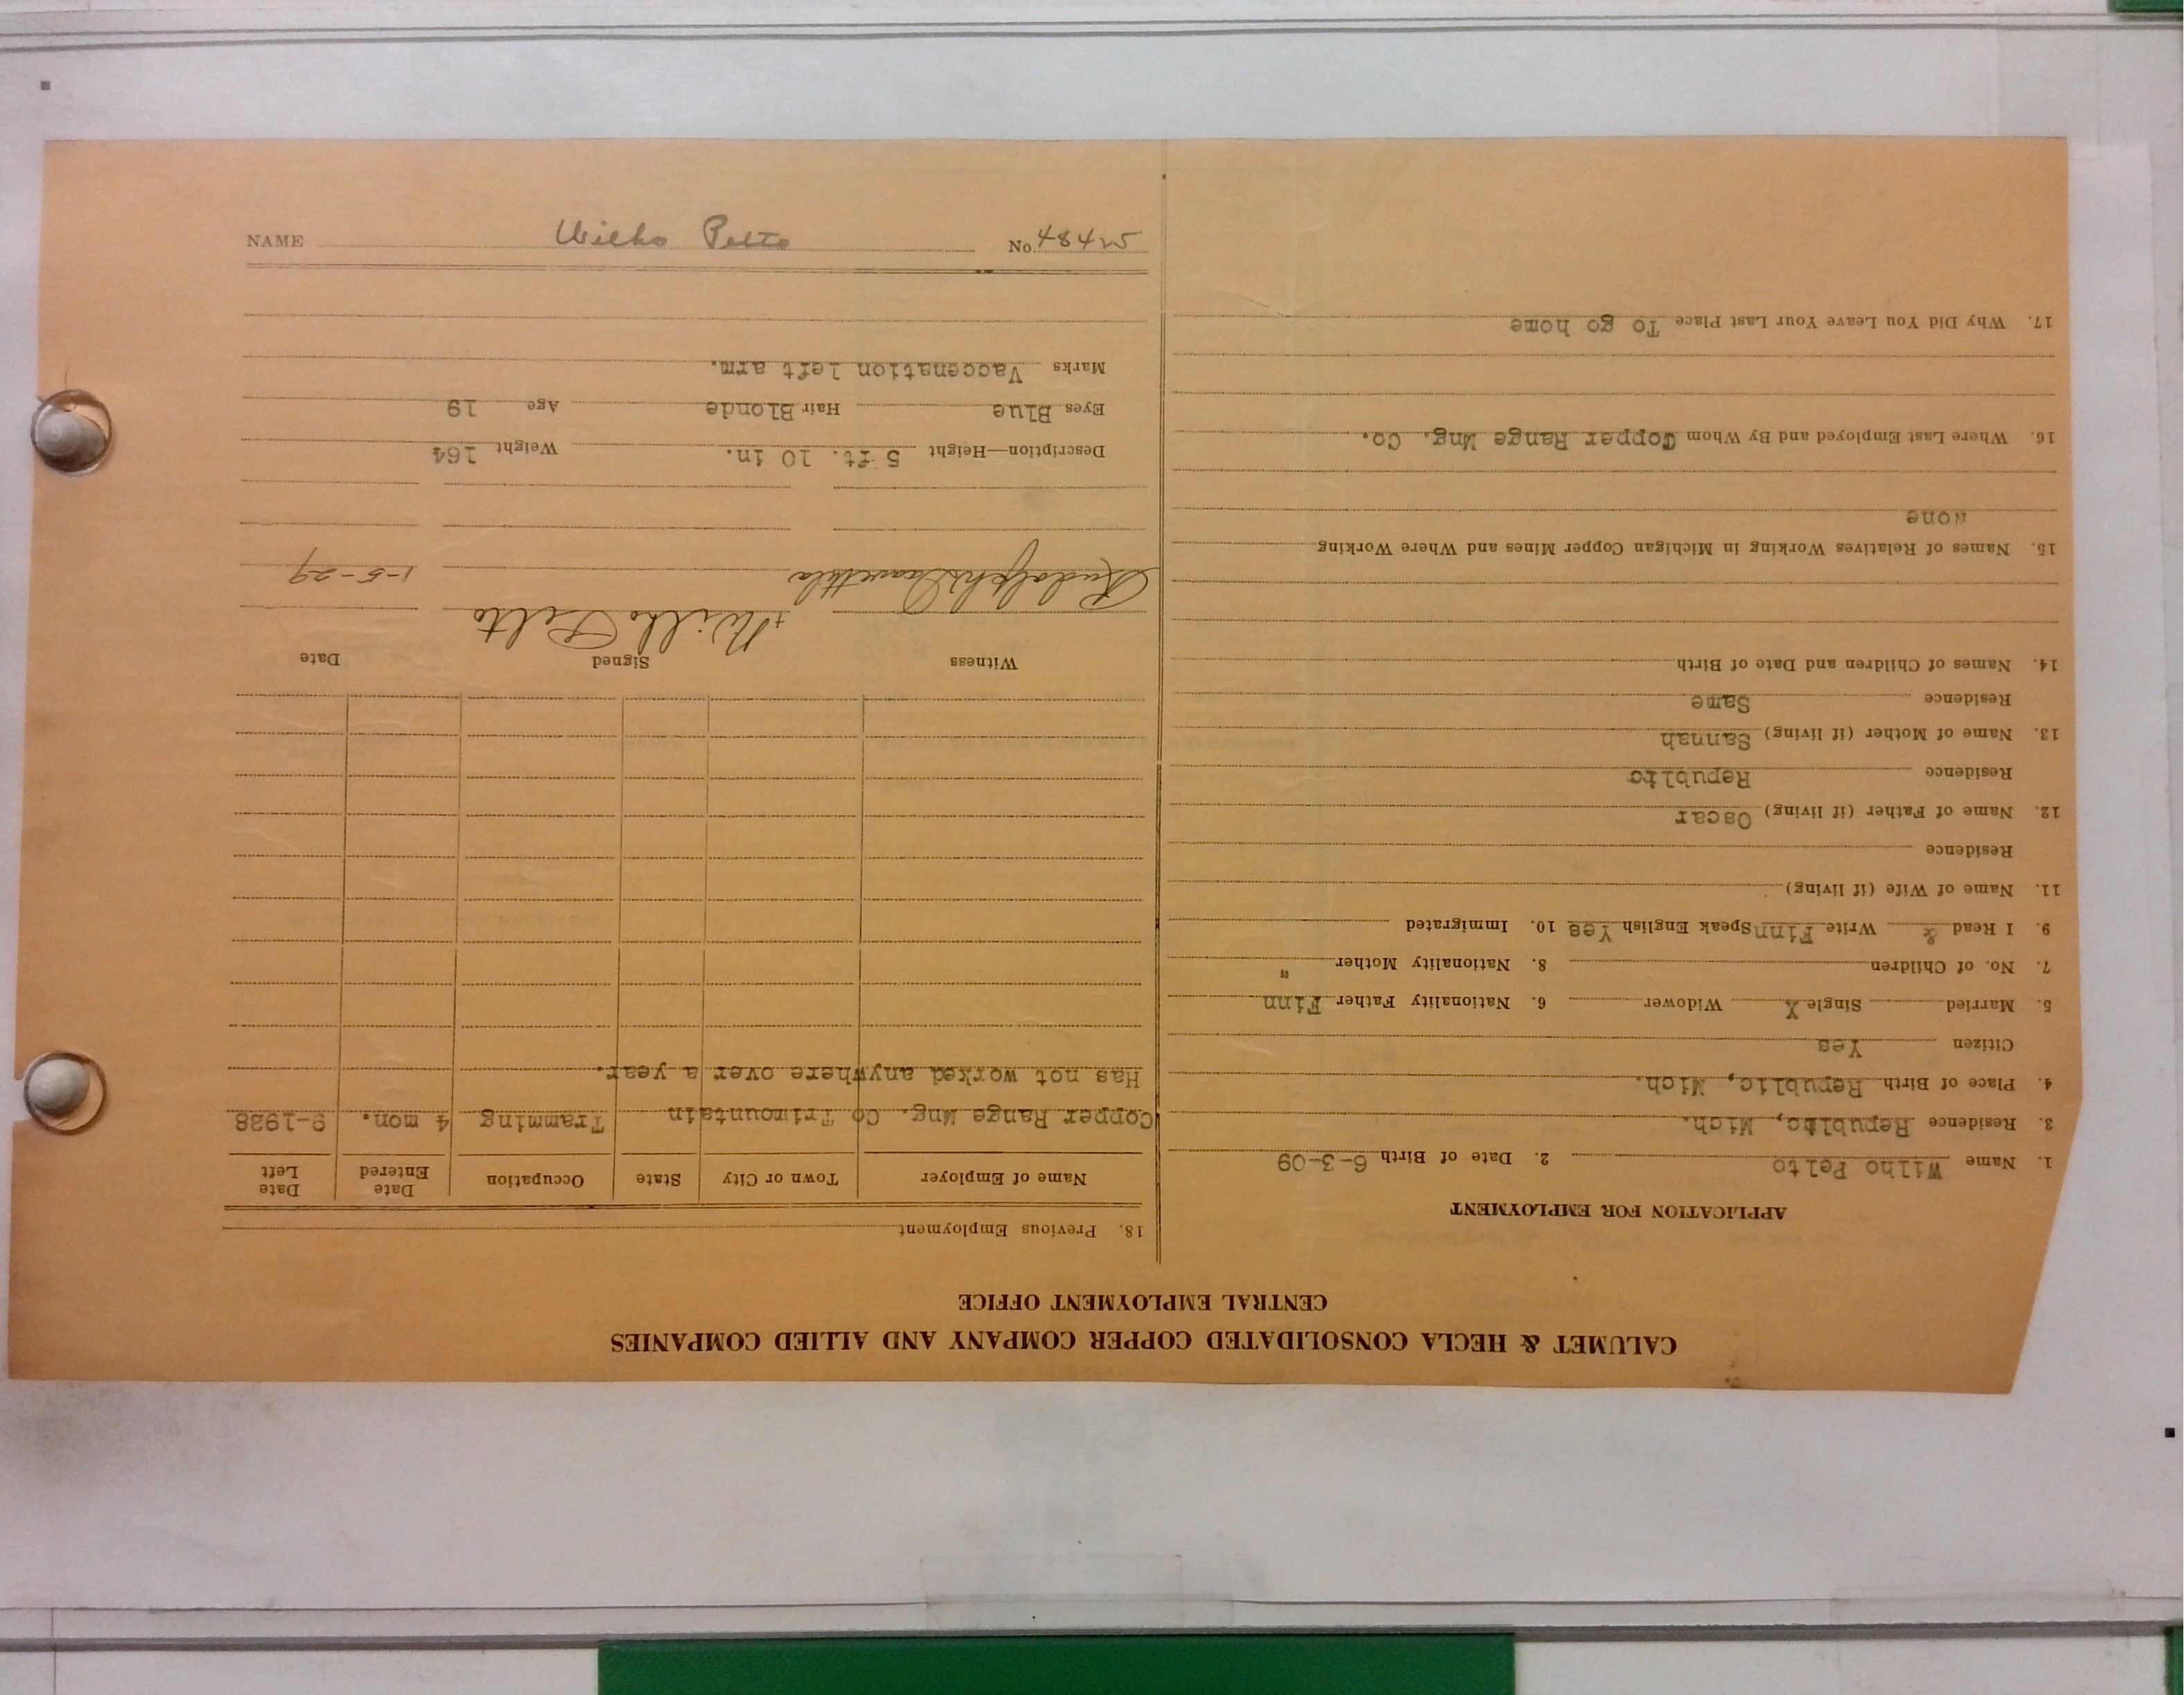 CALUMET & HECLA CONSOLIDATED COPPER COMPANY AND ALLIED COMPANIES
CENTRAL EMPLOYMENT OFFICE
APPLICATION FOR EMPLOYMENT
1. Name Wilho Pelto 2. Date of Birth 6-3-09
3. Residence Republic, Mich.
4. Place of Birth Republic, Mich.
Citizen Yes
5. Married Single X Widower 6. Nationality Father Finn
7. No. of Children 8. Nationality Mother "
9. I Read & Write Finn Speak English Yes 10. Immigrated
11. Name of Wife (if living)
Residence
12. Name of Father (if living) Oscar
Residence Republic
13. Name of Mother (if living) Sannah
Residence Same
14. Names of Children and Date of Birth
15. Names of Relatives Working in Michigan Copper Mines and Where Working
None
16. Where Last Employed and By Whom Copper Range Mng. Co.
17. Why Did You Leave Your Last Place To go home
18. Previous Employment
Name of Employer Town or City State Occupation Date Entered Date Left
Copper Range Mng. Co Trimountain Tramming 4 mon. 9-1928
Has not worked anywhere over a year.
Witness Signed Date
Wilho Pelto
Rudolph 1-5-29
Description—Height 5 ft. 10 in. Weight 164
Eyes Blue Hair Blonde Age 19
Marks Vaccenation left arm.
NAME Wilho Pelto No. 48425